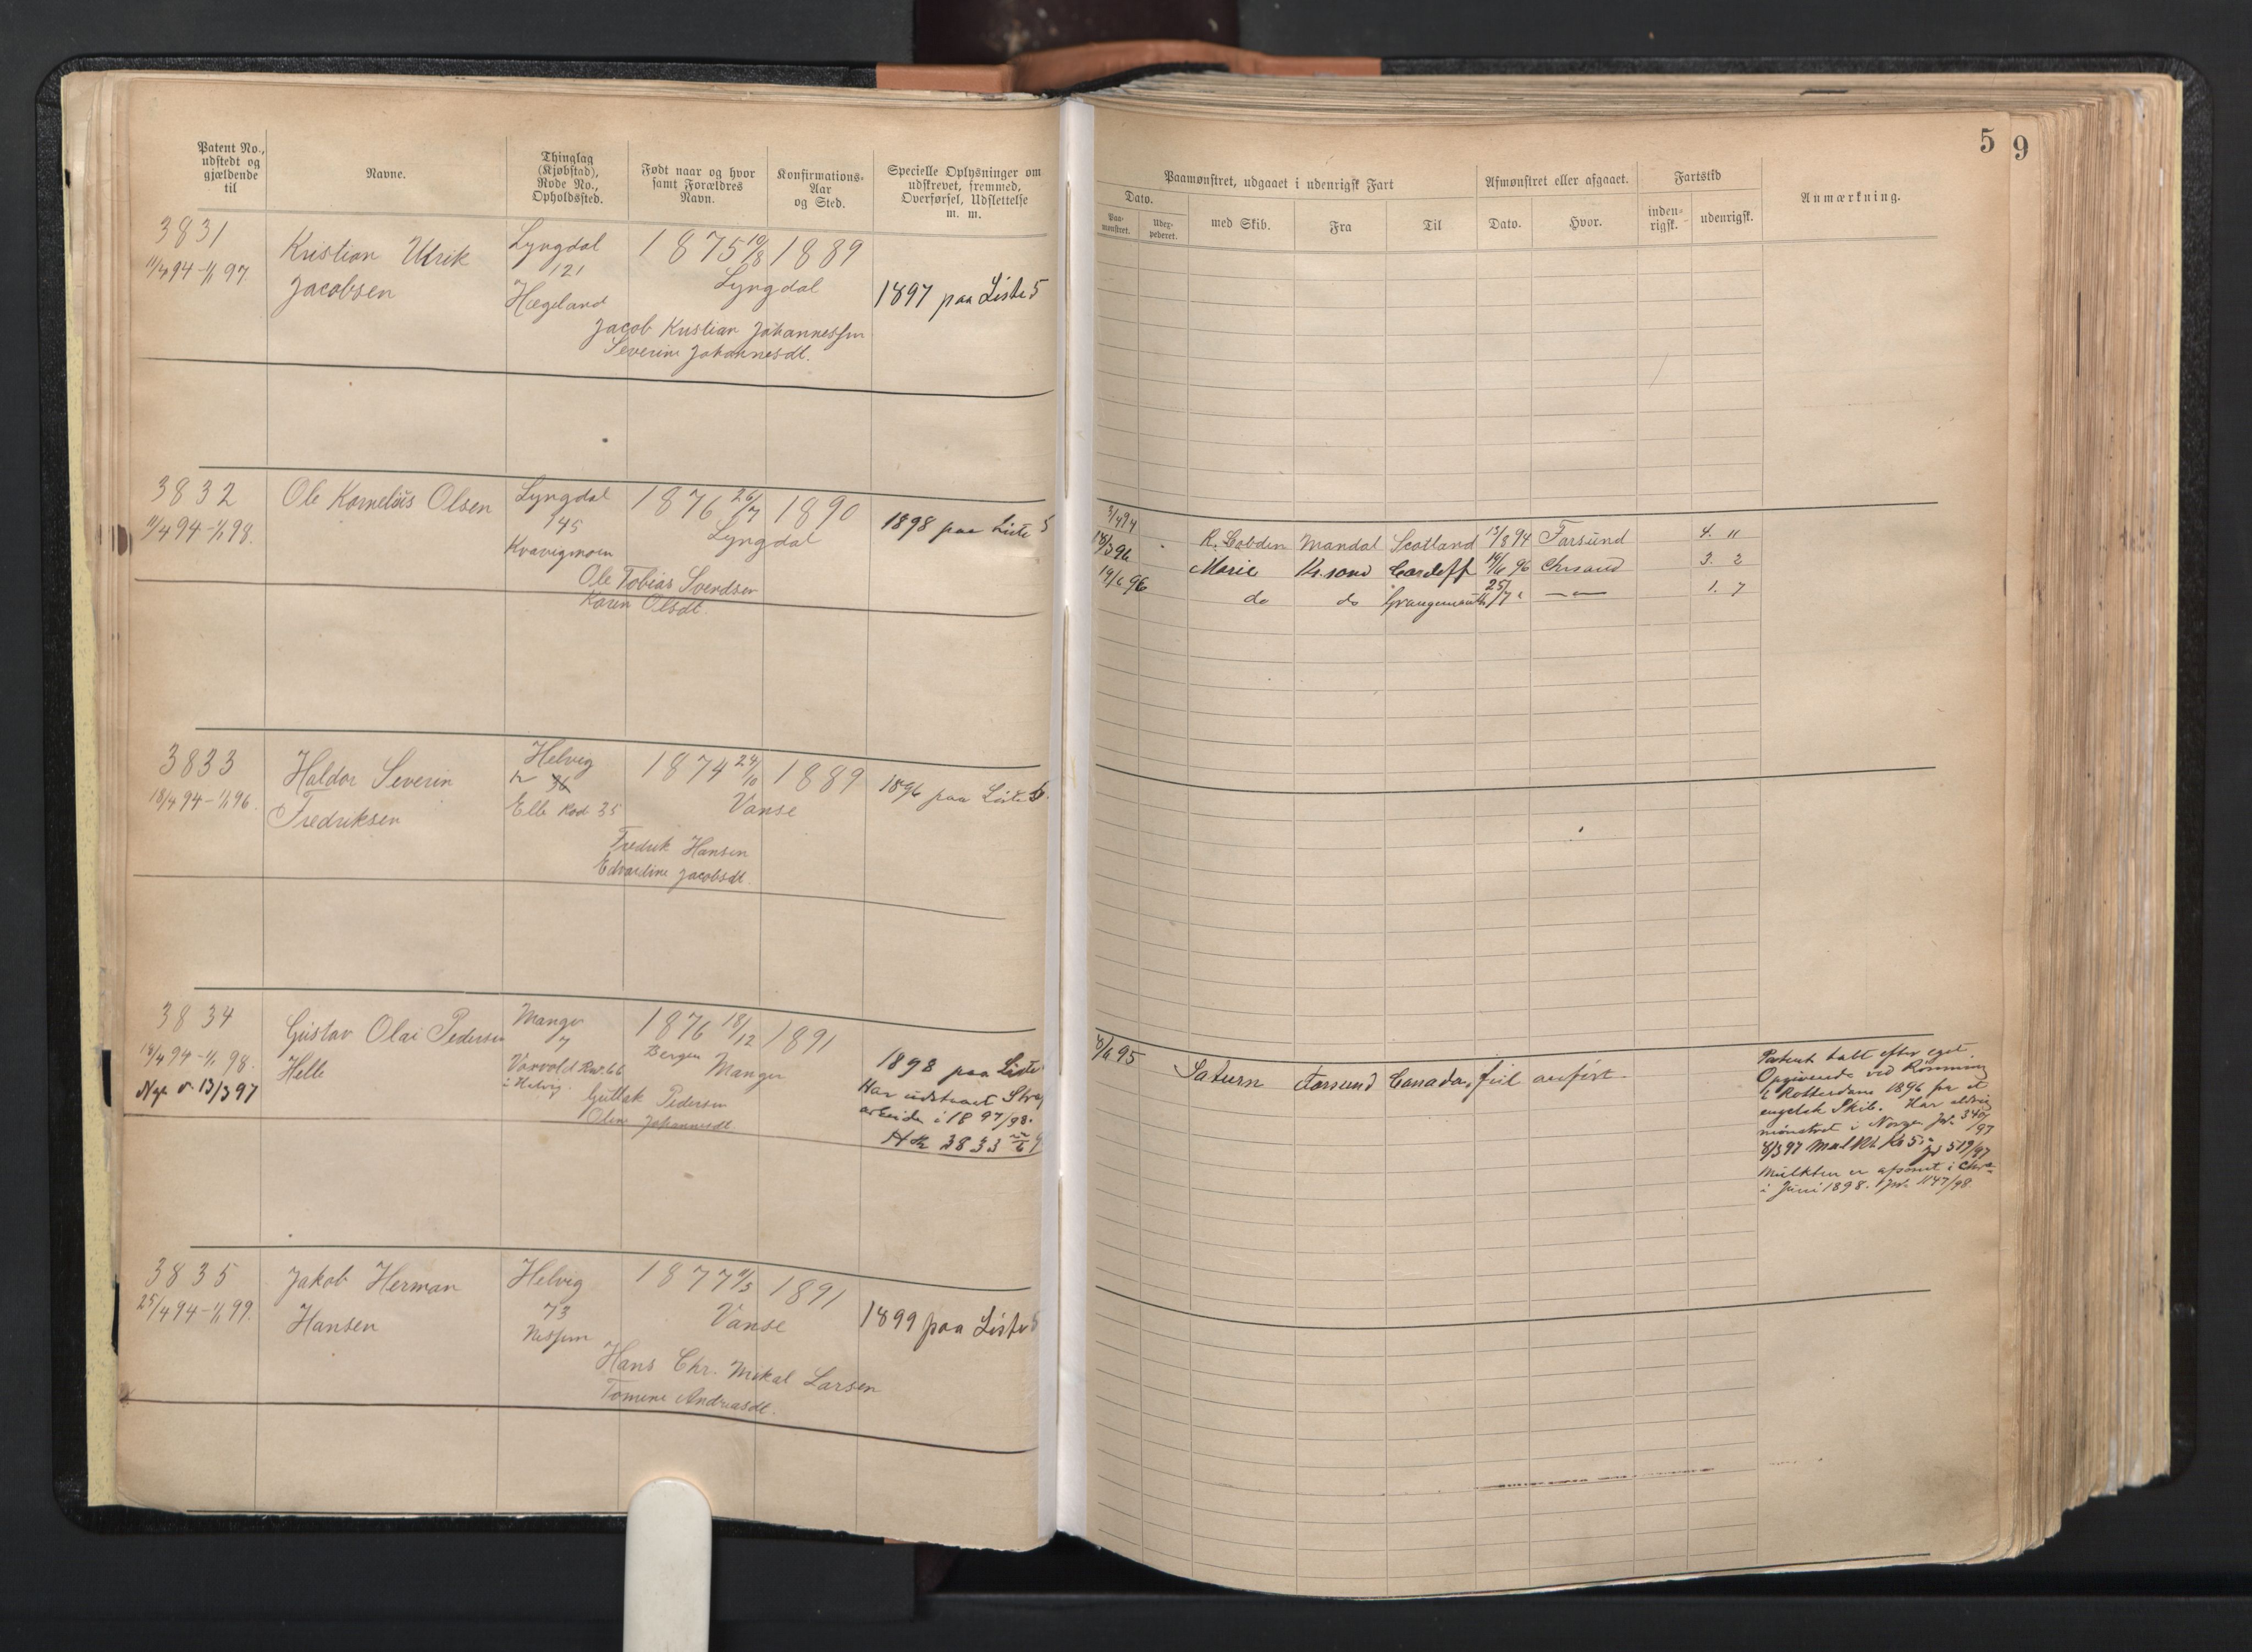 Patent No., udstedt og gjældende til
Navne.
Thinglag (Kjøbstad), Rode No., Opholdssted.
Født naar og hvor samt Forældres Navn.
Konfirmations-Aar og Sted.
Specielle Oplysninger om udskrevet, fremmed, Overførsel, Udslettelse m. m.
3831
11/4 94 - 1/1 97.
Kristian Ulrik
Jacobsen
Lyngdal
121
Hægeland
1875 19/8 1889
Lyngdal
Jacob Kristian Johannessen
Severine Johannesdt.
1897 paa Liste 5
3832
11/4 94 - 1/1 98.
Ole Kornelius Olsen
Lyngdal
145
Kvavigmoen
1876 26/7 1890
Lyngdal
Ole Tobias Svendsen
Karen Olsdt.
1898 paa Liste 5
3833
18/4 94 - 1/1 96.
Haldor Severin
Fredriksen
Helvig
36
Elle Rod 35
1874 24/10 1889
Vanse
Fredrik Hansen
Edvardine Jacobsdt.
1896 paa Liste 5.
3834
18/4 94 - 1/1 98.
Nyt 13/3 97
Gustav Olai Pedersen
Helle
Manger
7
66
i Helvig.
1876 18/12 1891
Bergen Manger
Guttak Pedersen
Oline Johannesdt
1898 paa Liste
Har udstaaet
arbeide i 1897/98.
3833
3835
25/4 94 - 1/1 99.
Jakob Herman
Hansen
Helvig
73
1877 1891
Vanse
Hans Chr. Mikal Larsen
Tomine Andreasdt.
1899 paa Liste 5
5 9
Paamønstret, udgaaet i udenrigsk Fart
Afmønstret eller afgaaet.
Fartstid
Anmærkning.
Dato.
Paa-mønstret.
med Skib.
Fra
Til
Dato.
Hvor.
inden-rigsk.
udenrigsk.
3/4 94 R. Cobden Mandal Scotland 13/8 94 Farsund 4. 11
18/3 96 Marie Kr.sand Cardeff 19/6 96 Chrsand 3. 2
19/6 96 do do Grangemouth 25/7 " — " — 1. 7
95 Saturn Farsund Canada, feil anført.
Patent talt efter eget
Opgivende ved Rømning
i Rotterdam 1896 fra et
engelsk Skib. Har aldrig
mønstret i Norge
/97
519/97
Mulkten er afsonet i
i Juni 1898. 1147/98